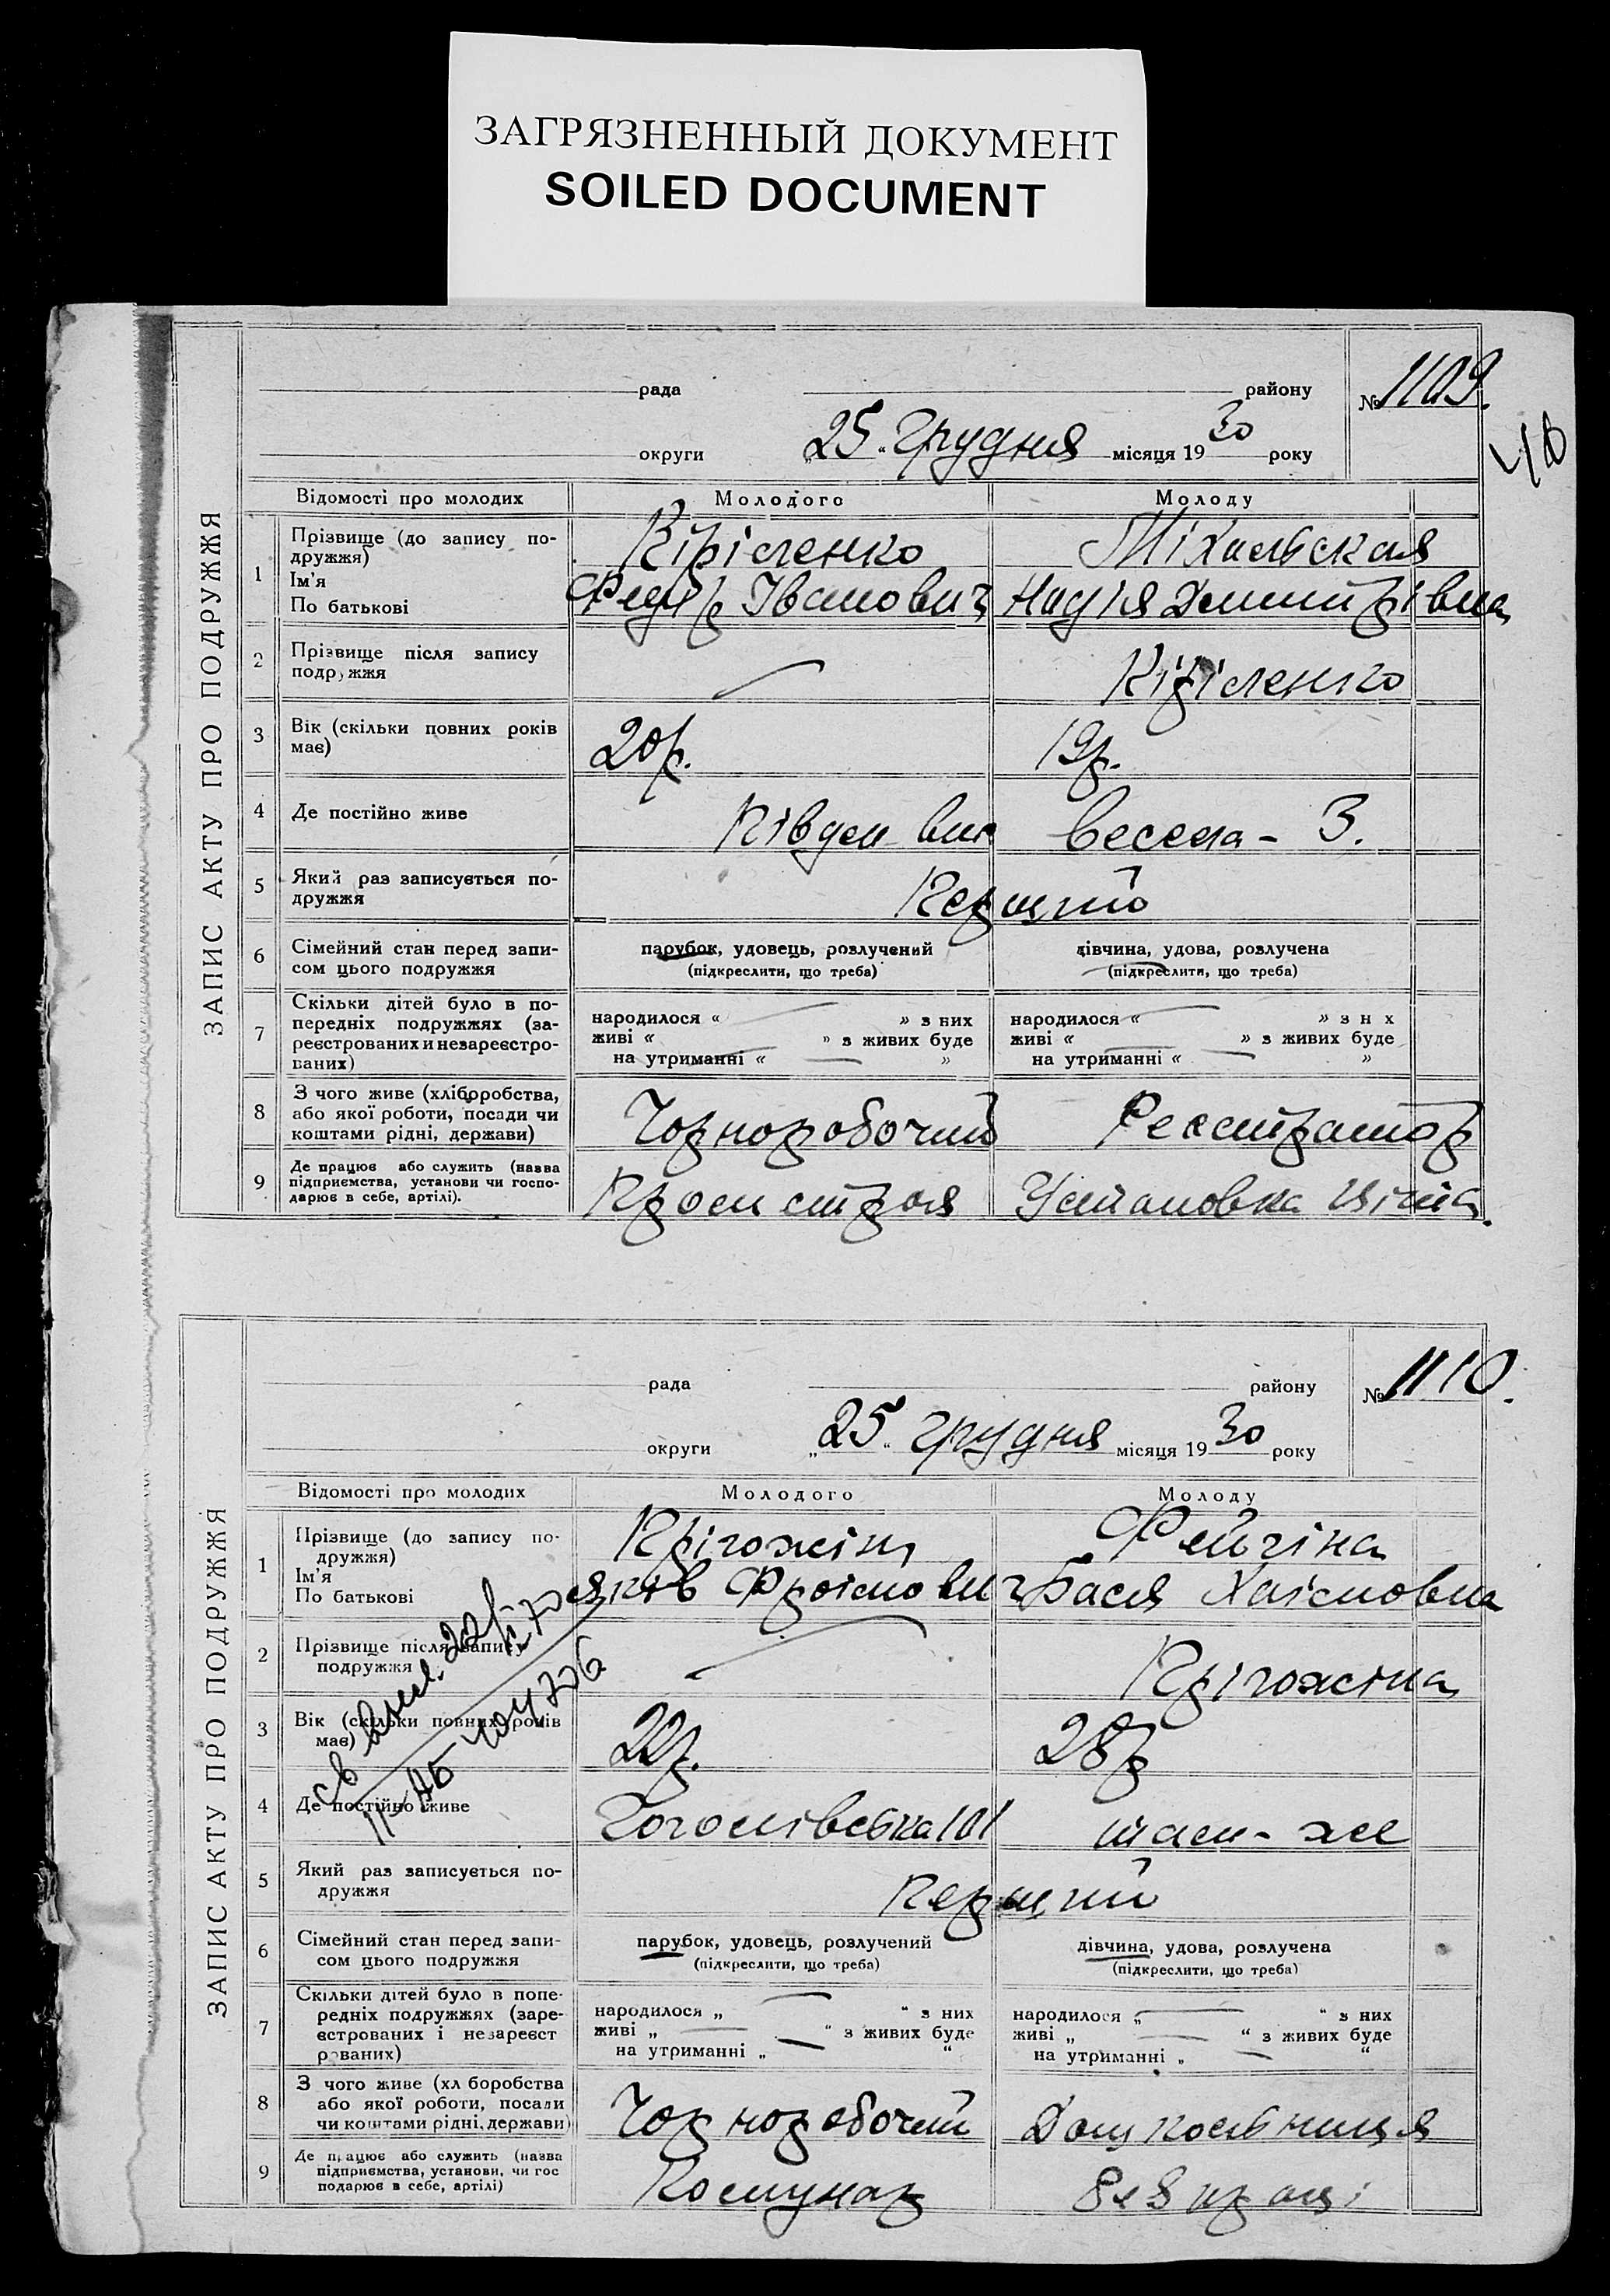 ЗАГРЯЗНЕННЫЙ ДОКУМЕНТ
SOILED DOCUMENT
ЗАПИС АКТУ ПРО ПОДРУЖЖЯ
рада району № 1109.
40
округи „25“ грудня місяця 1930 року
Відомості про молодих Молодого Молоду
1 Прізвище (до запису по-
дружжя) Кіріленко Міхальская
Ім'я
По батькові Федір Іванович Надія Дмитрівна
2 Прізвище після запису
подружжя — Кіріленко
3 Вік (скільки повних років
має) 20 р. 19 р.
4 Де постійно живе Південна вул Весела - 3.
5 Який раз записується по-
дружжя Перший
6 Сімейний стан перед запи-
сом цього подружжя парубок, удовець, розлучений дівчина, удова, розлучена
(підкреслити, що треба) (підкреслити, що треба)
7 Скільки дітей було в по-
передніх подружжях (за-
реєстрованих и незареєстро-
ваних)
народилося « — » з них народилося « — » з н х
живі « — » з живих буде живі « — » з живих буде
на утриманні « — » на утриманні « — »
8 З чого живе (хліборобства,
або якої роботи, посади чи
коштами рідні, держави) Чорноробочий Реєстратор
9 Де працює або служить (назва
підприємства, установи чи госпо-
дарює в себе, артілі). Установка
ЗАПИС АКТУ ПРО ПОДРУЖЖЯ
рада району № 1110.
округи „25“ грудня місяця 1930 року
Відомості про молодих Молодого Молоду
1 Прізвище (до запису по-
дружжя) Крігожін Фейгіна
Ім'я
По батькові Яків Фроімович Бася Хаімовна
2 Прізвище після запису
подружжя — Крігожіна
3 Вік (скільки повних років
має) 22 р. 28 р
4 Де постійно живе Гоголівська 101 там-же
5 Який раз записується по-
дружжя Перший
6 Сімейний стан перед запи-
сом цього подружжя парубок, удовець, розлучений дівчина, удова, розлучена
(підкреслити, що треба) (підкреслити, що треба)
7 Скільки дітей було в попе-
редніх подружжях (заре-
єстрованих і незареєст
рованих)
народилося „ — “ з них народилося „ — “ з них
живі „ — “ з живих буде живі „ — “ з живих буде
на утриманні „ — “ на утриманні „ — “
8 З чого живе (хл боробства
або якої роботи, посади
чи коштами рідні, держави) Чорноробочий Дошкольниця
9 Де працює або служить (назва
підприємства, установи, чи гос
подарює в себе, артілі) Комунар